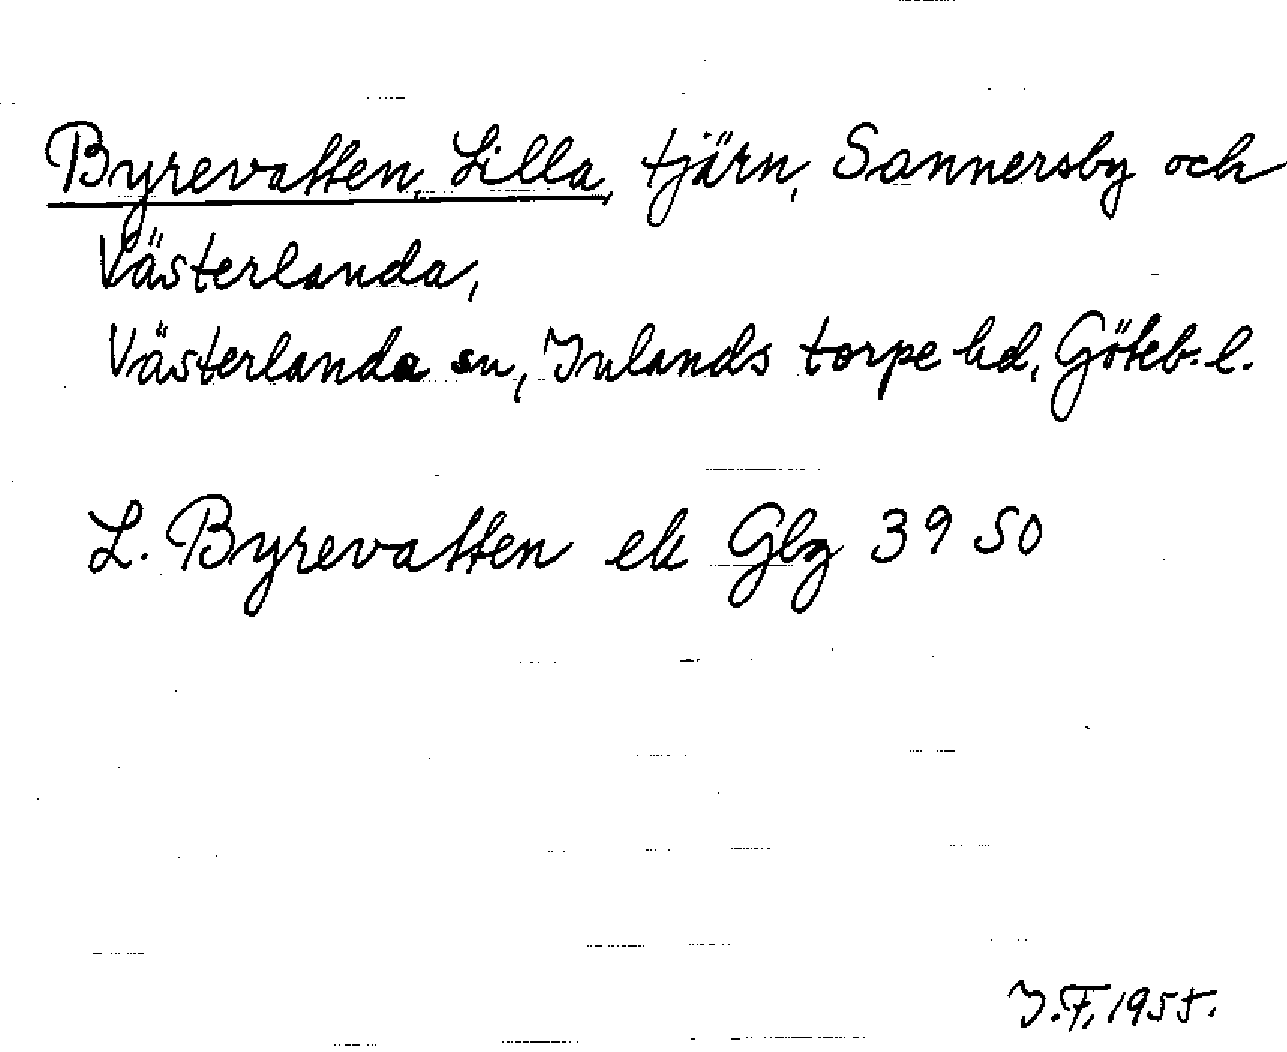 Byrevatten, Lilla, tjärn, Sannersby och
Västerlanda,
Västerlanda sn, Inlands torpe hd, Göteb. l.
L. Byrevatten ek Gbg 39 50
I. F. 1955.